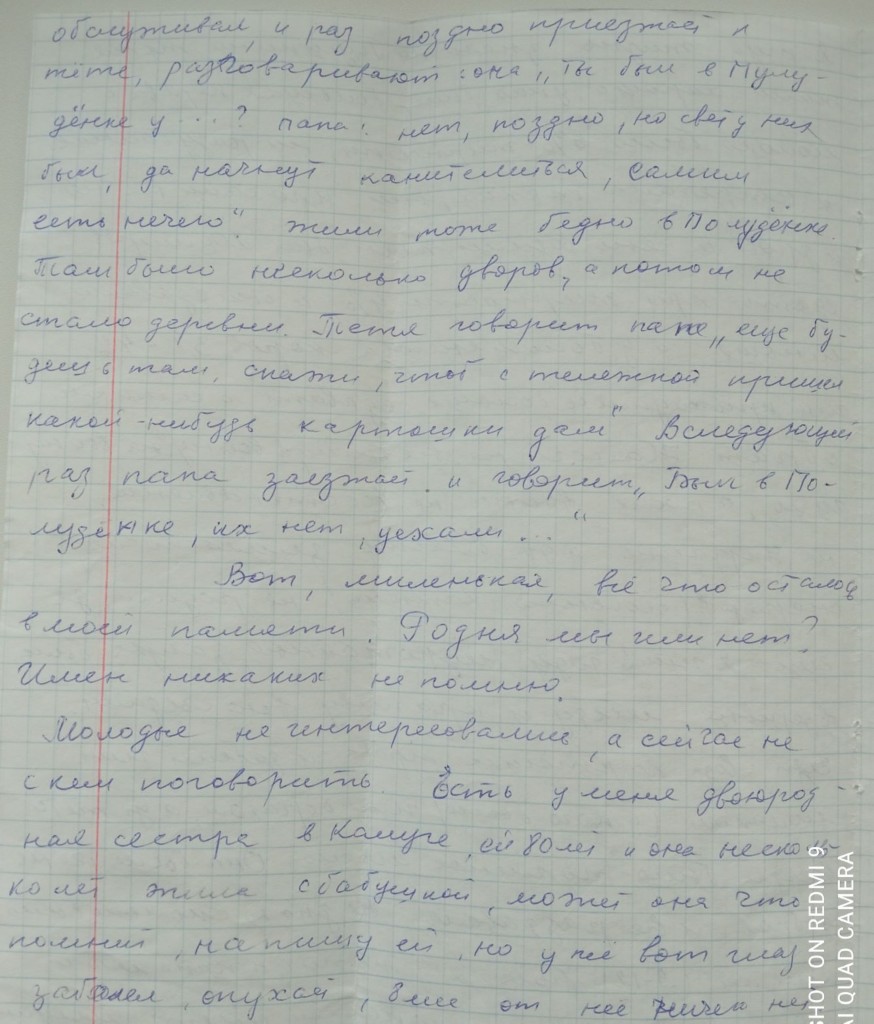 обслуживал, и раз поздно приезжает к
тёте, разговаривают: она „Ты был в Пулу-
дёнке у ...? папа: нет, поздно, но свет у них
был, да начнут канителиться, самим
есть нечего". жили тоже бедно в Полудёнке.
Там было несколько дворов, а потом не
стало деревни. Тётя говорит папе „еще бу-
дешь там, скажи, чтоб с тележкой пришли
какой-нибудь картошки дам" Вследующий
раз папа заезжает и говорит „Был в По-
лудёнке, их нет, уехали..."
Вот, миленькая, всё что осталось
в моей памяти. Родня мы или нет?
Имен никаких не помню.
Молодые не интересовались, а сейчас не
с кем поговорить. Есть у меня двоюрод
ная сестра в Калуге, ей 80 лет и она несколь-
ко лет жила с бабушкой, может она что
помнит, напишу ей, но у неё вот глаз
заболел, опухает, от неё ничего нет
SHOT ON REDMI 9
AI QUAD CAMERA